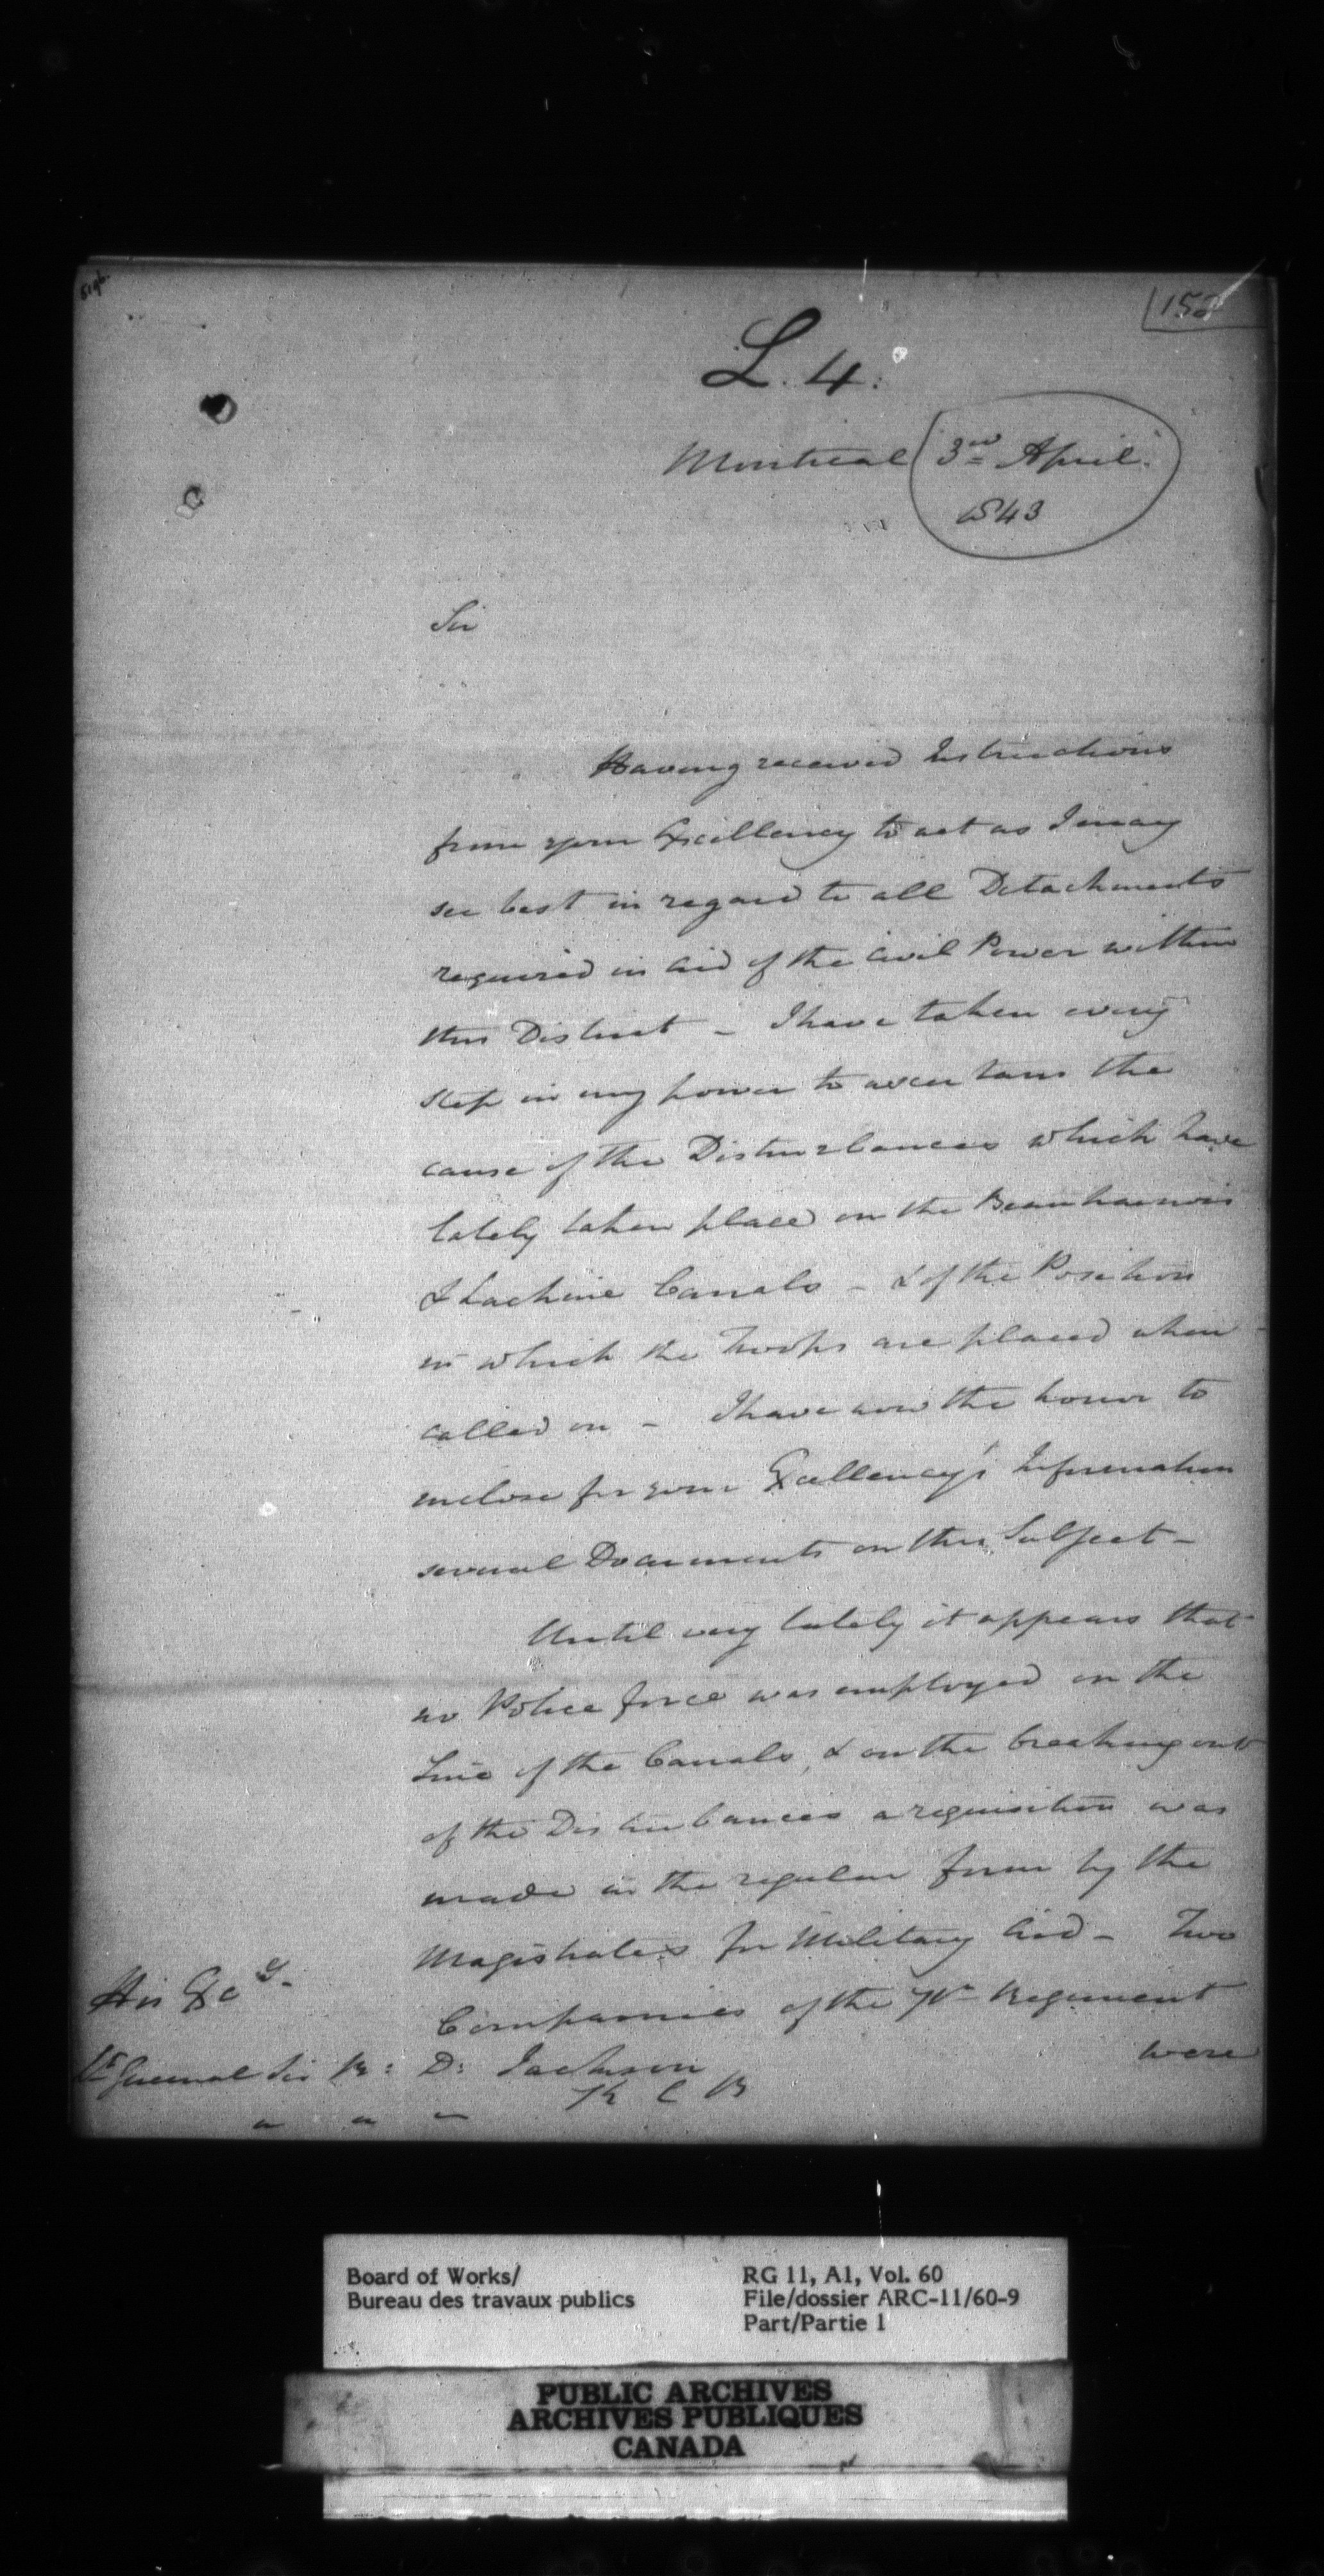 152
L. 4.
Montreal 3rd April
1843
Sir
Having received Instructions
from your Excellency to act as I may
see best in regard to all Detachments
required in aid of the Civil Power within
this District - I have taken every
step in my power to ascertain the
cause of the Disturbances which have
lately taken place on the Beauharnois
& Lachine Canals - & of the Position
in which the Troops are placed when
called on - I have now the honor to
enclose for your Excellency's Information
several Documents on this Subject -
Until very lately it appears that
no Police force was employed on the
Line of the Canals, & on the breaking out
of the Disturbances a requisition was
made in the regular form by the
Magistrates for Military Aid - Two
Companies of the 71st Regiment
were
His Excy.
Lt General Sir R: D: Jackson
K C B
Board of Works/
Bureau des travaux publics
RG 11, A1, Vol. 60
File/dossier ARC-11/60-9
Part/Partie 1
PUBLIC ARCHIVES
ARCHIVES PUBLIQUES
CANADA